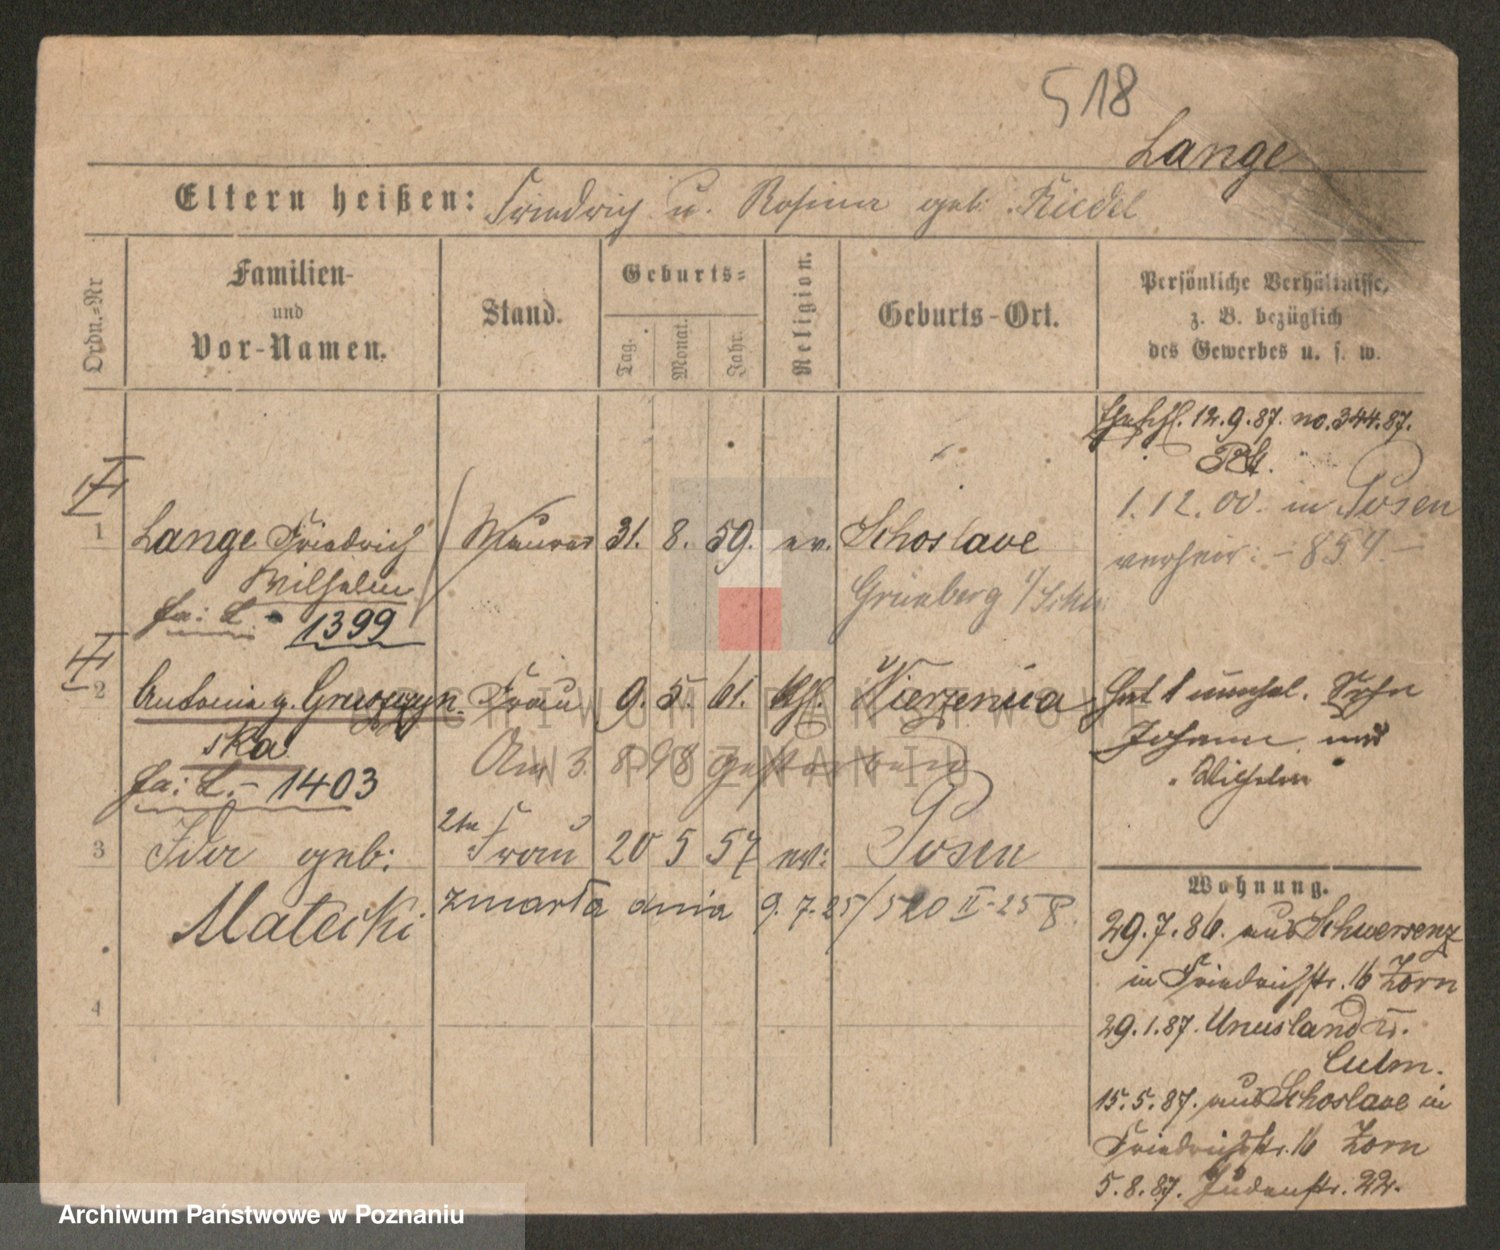 518
Lange
Eltern heißen: Friedrich u. Rosina geb. Riedel
Ordn.=Nr
Familien-
und
Vor-Namen.
Stand.
Geburts=
Tag.
Monat.
Jahr.
Religion.
Geburts-Ort.
Persönliche Verhältnisse,
z. B. bezüglich
des Gewerbes u. s. w.
Eheschl. 12.9.87. no. 344.87.
1.12.00. in Posen
verheir: - 854 -
1 Lange Friedrich Maurer 31. 8. 59. ev. Schoslawe
Wilhelm Grünberg
fa: L - 1399
2 Antonie g. Gruszczyn- Frau 9. 5. 61. kth. Wierzenica Hat 1 unehel. Sohn
ska Johann und
Am 3. 8 98 gestorben Wilhelm
fa: L. - 1403
3 Ida geb: 2te Frau 20 5 57 ev: Posen
Matecki zmarła dnia 9.7.25/520 II-25
4
Wohnung.
29.7.86. aus Schwersenz
in Friedrichstr. 16 Zorn
29.1.87. Unusland
Culm.
15.5.87. aus Schoslawe in
Friedrichstr. 16 Zorn
5.8.87. Judenstr. 22.
ARCHIWUM PAŃSTWOWE
W POZNANIU
Archiwum Państwowe w Poznaniu